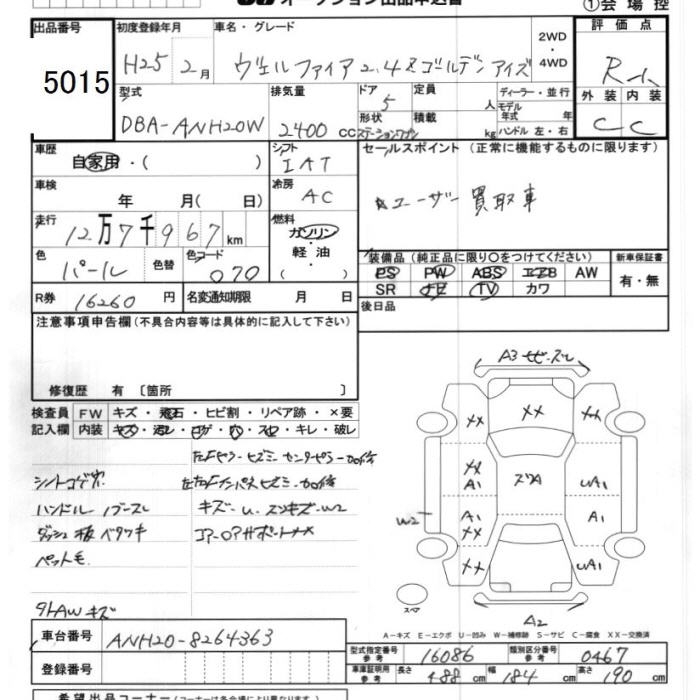 オークション出品申込書
①会場控
出品番号 初度登録年月 車名・グレード 2WD・4WD 評価点
5015 H25 2月 ヴェルファイア 2.4Z ゴールデンアイズ R-1
型式 排気量 ドア 定員 ディーラー・並行 外装 内装
DBA-ANH20W 2400 CC 5 人 モデル年式 年 C C
形状 積載
ステーションワゴン kg ハンドル 左・右
車歴 シフト セールスポイント (正常に機能するものに限ります)
自家用・( ) IAT
車検 冷房
年 月(日) AC ユーザー買取車
走行 燃料
12万7千967km ガソリン・軽油( )
色 色替 色コード 装備品 (純正品に限り○をつけてください) 新車保証書
パール 070 PS PW ABS エアB AW 有・無
SR ナビ TV カワ
R券 16260円 名変通知期限 月 日 後日品
注意事項申告欄 (不具合内容等は具体的に記入して下さい)
修復歴 有 〔箇所 〕
検査員 FW キズ・飛石・ヒビ割・リペア跡・×要
記入欄 内装 キズ・汚レ・コゲ・穴・スレ・キレ・破レ
シートコゲ穴
ハンドル
ダッシュ板ベタツキ
ペット毛
キズ・U
タトAWキズ
A3
XX XX XX
XX A1 ズリA UA1
A1 XX A1
W2
XX UA1
スペア
A2
A-キズ E-エクボ U-凹み W-補修跡 S-サビ C-腐食 XX-交換済
車台番号 ANH20-8264363
登録番号
型式指定番号 参考 16086 類別区分番号 参考 0467
車庫証明用 参考 長さ 488 cm 幅 184 cm 高さ 190 cm
希望出品コーナー